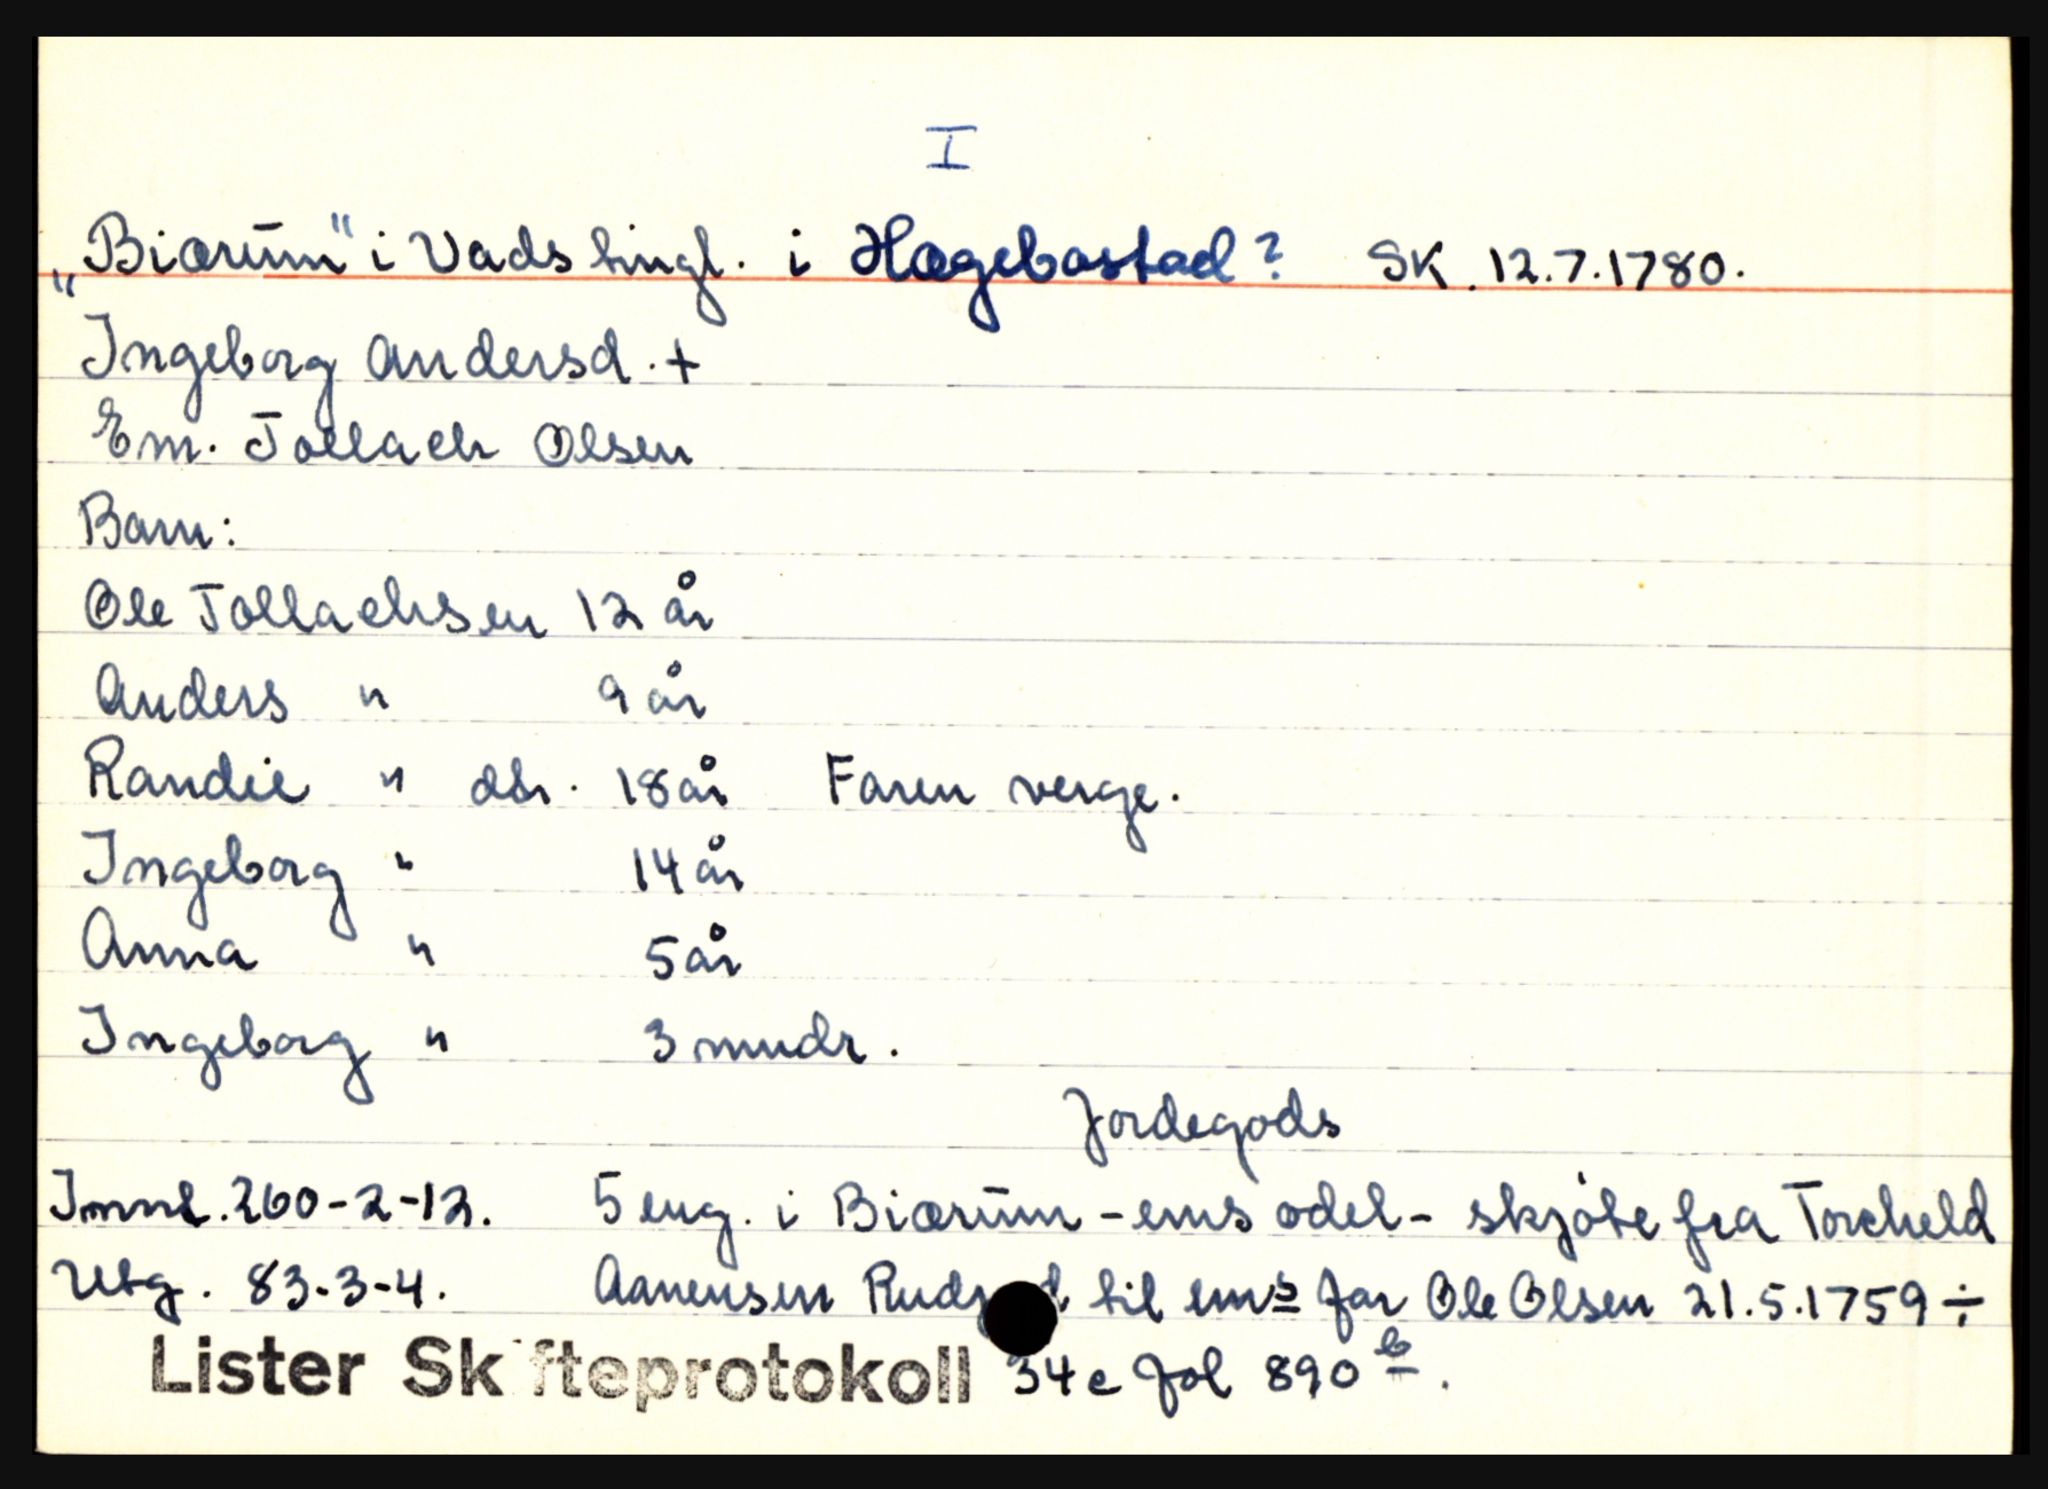 I
„Biærum" i Vads tingl. i Hægebostad? SK. 12.7.1780.
Ingeborg Andersd. +
Em. Tollach Olsen
Barn:
Ole Tollachsen 12 år
Anders " 9 år
Randie " dtr. 18 år Faren verge.
Ingeborg " 14 år
Anna " 5 år
Ingeborg " 3 mndr.
Jordegods
Innt. 260-2-12. 5 eng. i Biærum - ems odel - skjöte fra Torcheld
Utg. 83-3-4. Aanensen til ems far Ole Olsen 21.5.1759 ÷
Lister Skifteprotokoll 34c fol 890 b.